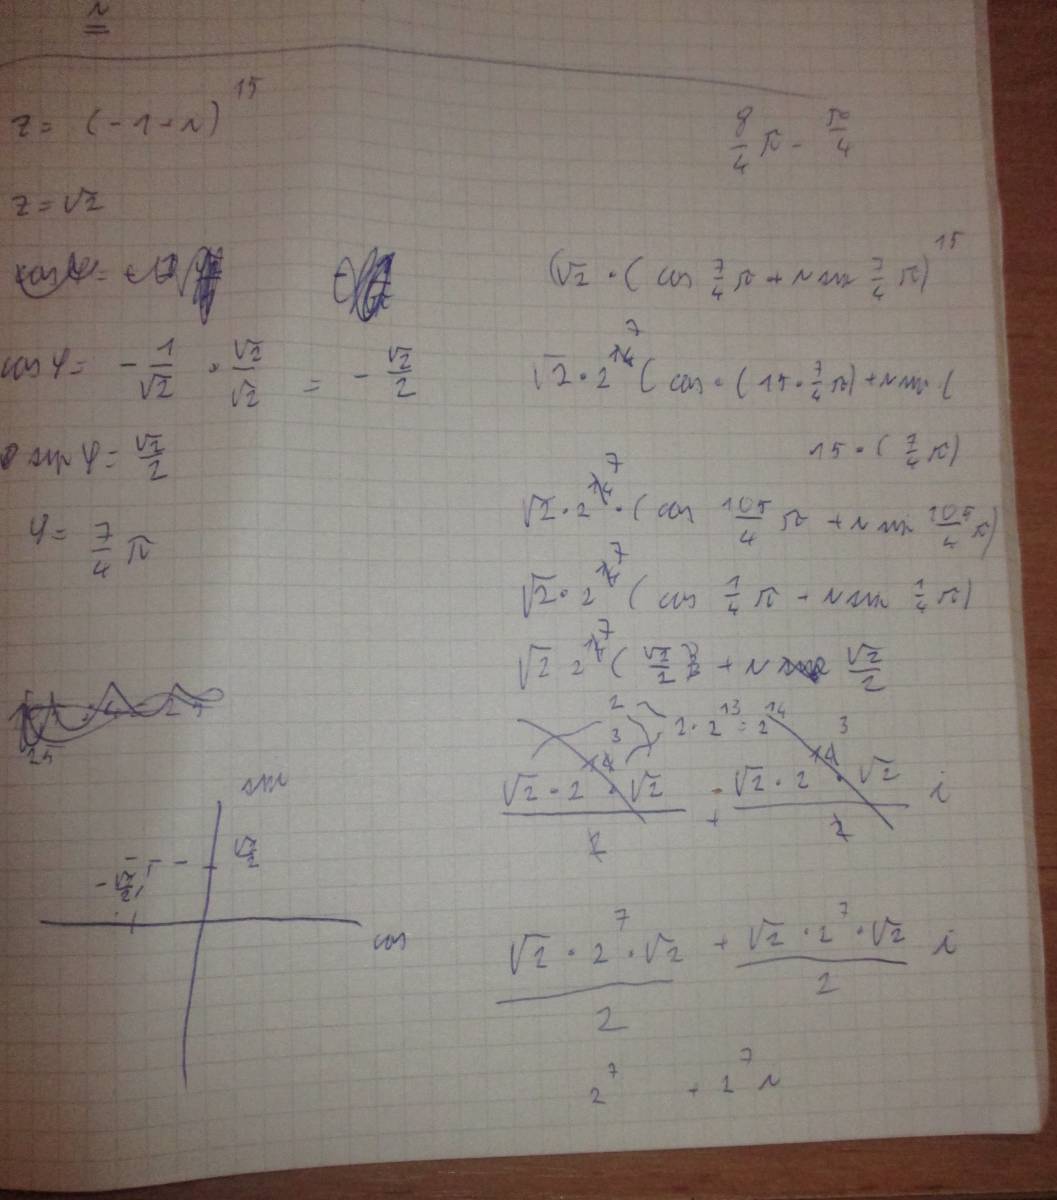 i
z = (-1+i)^15
z = √2
cos φ = -1/√2 · √2/√2 = -√2/2
sin φ = √2/2
φ = 7/4 π
sin
√2/2
-√2/2
cos
8/4 π - π/4
(√2 · (cos 7/4 π + i sin 7/4 π)^15
√2 · 2^7 (cos · (15 · 7/4 π) + i sin (
15 · (7/4 π)
√2 · 2^7 · (cos 105/4 π + i sin 105/4 π)
√2 · 2^7 (cos 1/4 π + i sin 1/4 π)
√2 2^7 (√2/2 + i √2/2
2 · 2^13 = 2^14
√2 · 2 · √2 / 2 + √2 · 2 · √2 / 2 i
√2 · 2^7 · √2 / 2 + √2 · 2^7 · √2 / 2 i
2^7 + 2^7 i